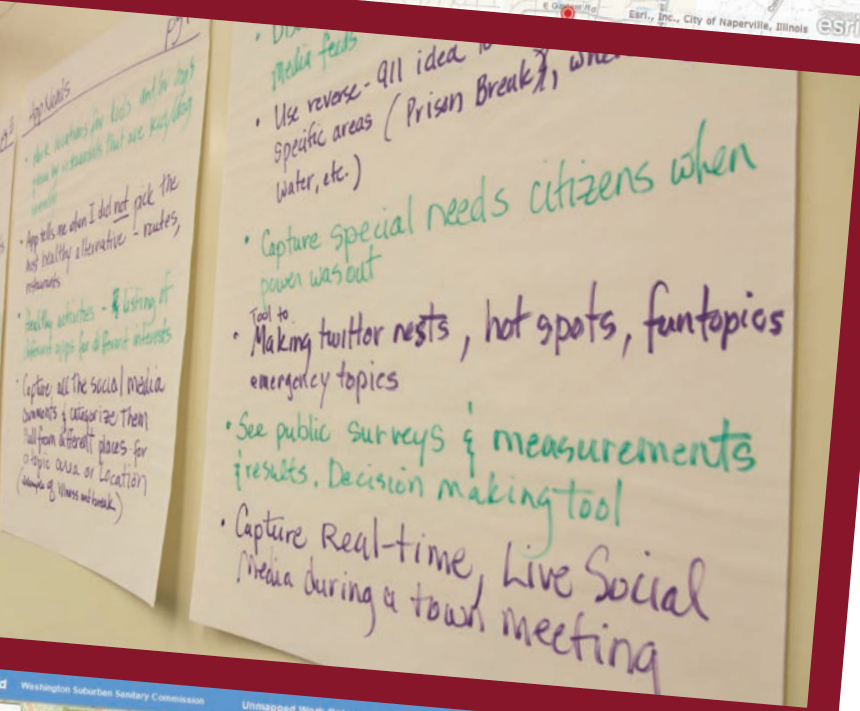 E
Rd
Esri., Inc., City of Naperville, Illinois
esri
pg 1
App Needs
locations for kids and/or dogs
restaurants that are kid/dog
• App tells me when I did not pick the
most healthy alternative - routes,
restaurants
• Healthy activities - & listing of
different apps for different interests
• Capture all the social media
comments & categorize Them
Pull from different places for
a topic area or Location
(example of illness outbreak)
Media feeds
• Use reverse-911 idea to
specific areas (Prison Break),
water, etc.)
• Capture special needs citizens when
power was out
Tool to
• Making twittor nests, hot spots, fun topics
emergency topics
• See public surveys & measurements
& results. Decision making tool
• Capture Real-time, Live Social
Media during a town meeting
d
Washington Suburban Sanitary Commission
Unmapped